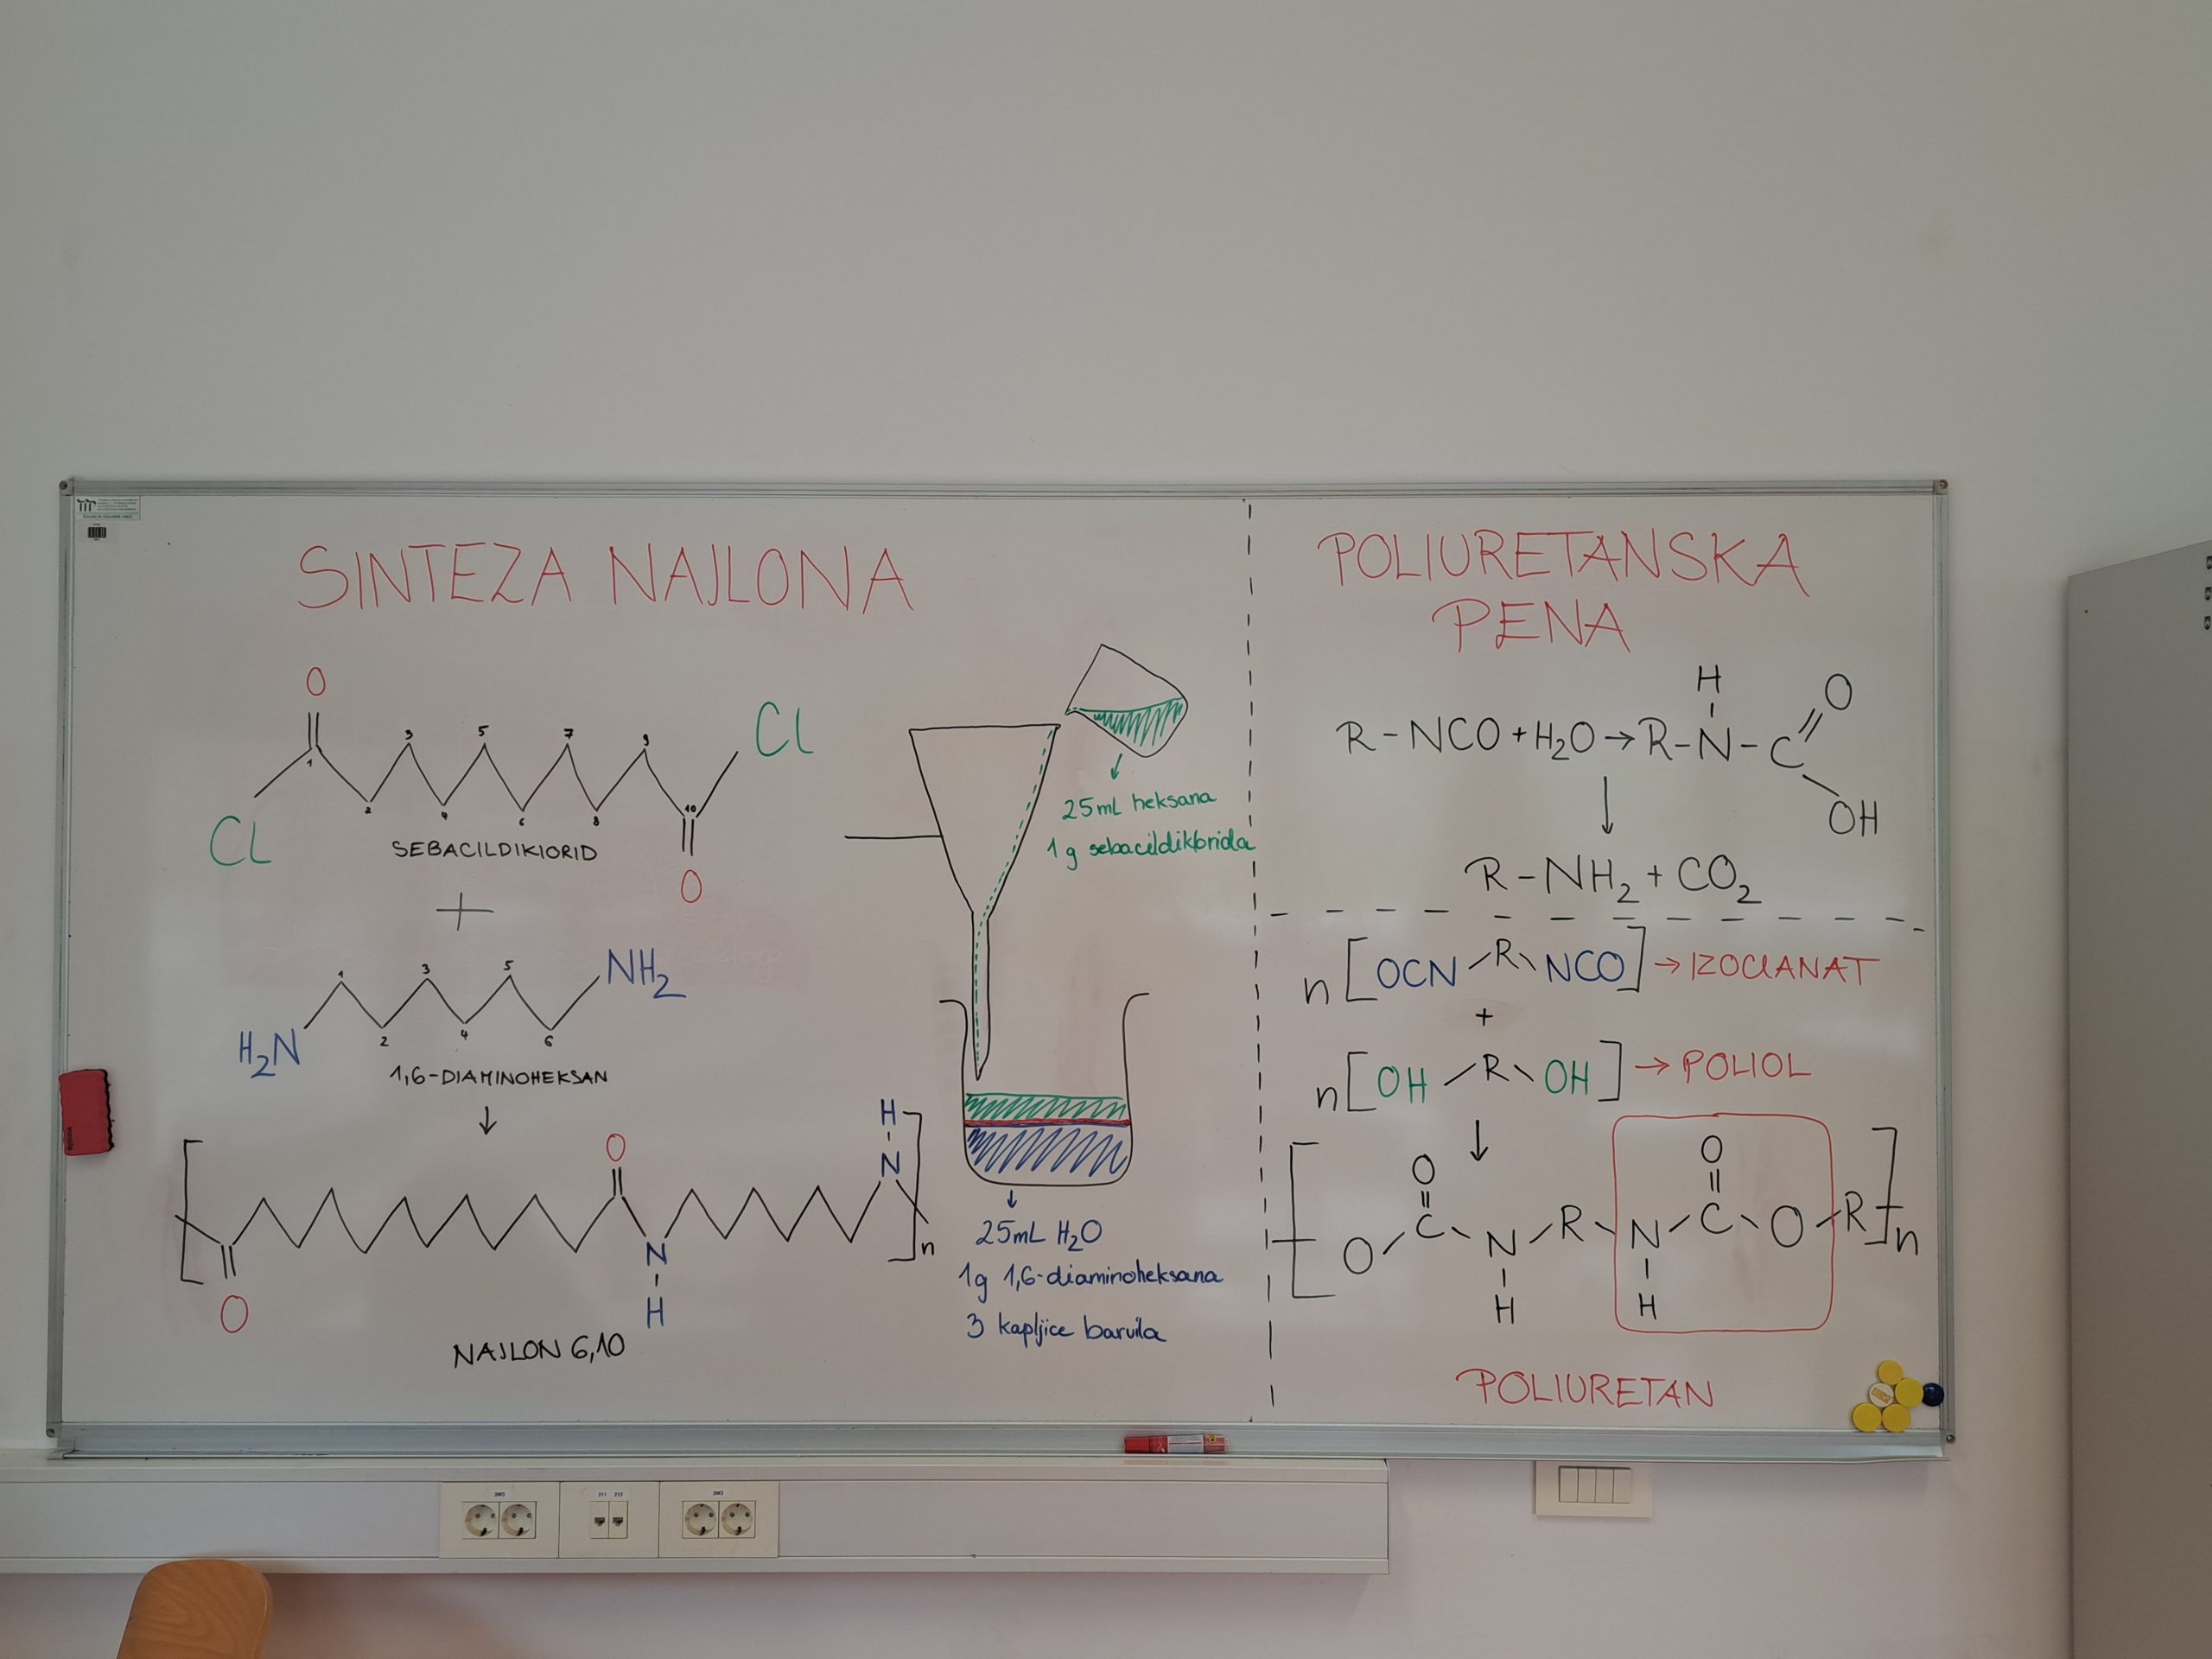 SINTEZA NAJLONA
O
Cl
1 2 3 4 5 6 7 8 9 10
Cl
O
SEBACILDIKIORID
+
H2N
1 2 3 4 5 6
NH2
1,6-DIAMINOHEKSAN
↓
O
O
N
H
H
N
n
NAJLON 6,10
25mL heksana
1g sebacildiklorida
25mL H2O
1g 1,6-diaminoheksana
3 kapljice barvila
POLIURETANSKA
PENA
R-NCO+H2O→R-N-C
H
O
OH
↓
R-NH2+CO2
n[OCN-R-NCO]→IZOCIANAT
+
n[OH-R-OH]→POLIOL
↓
O O
O C N R N C O R n
H H
POLIURETAN